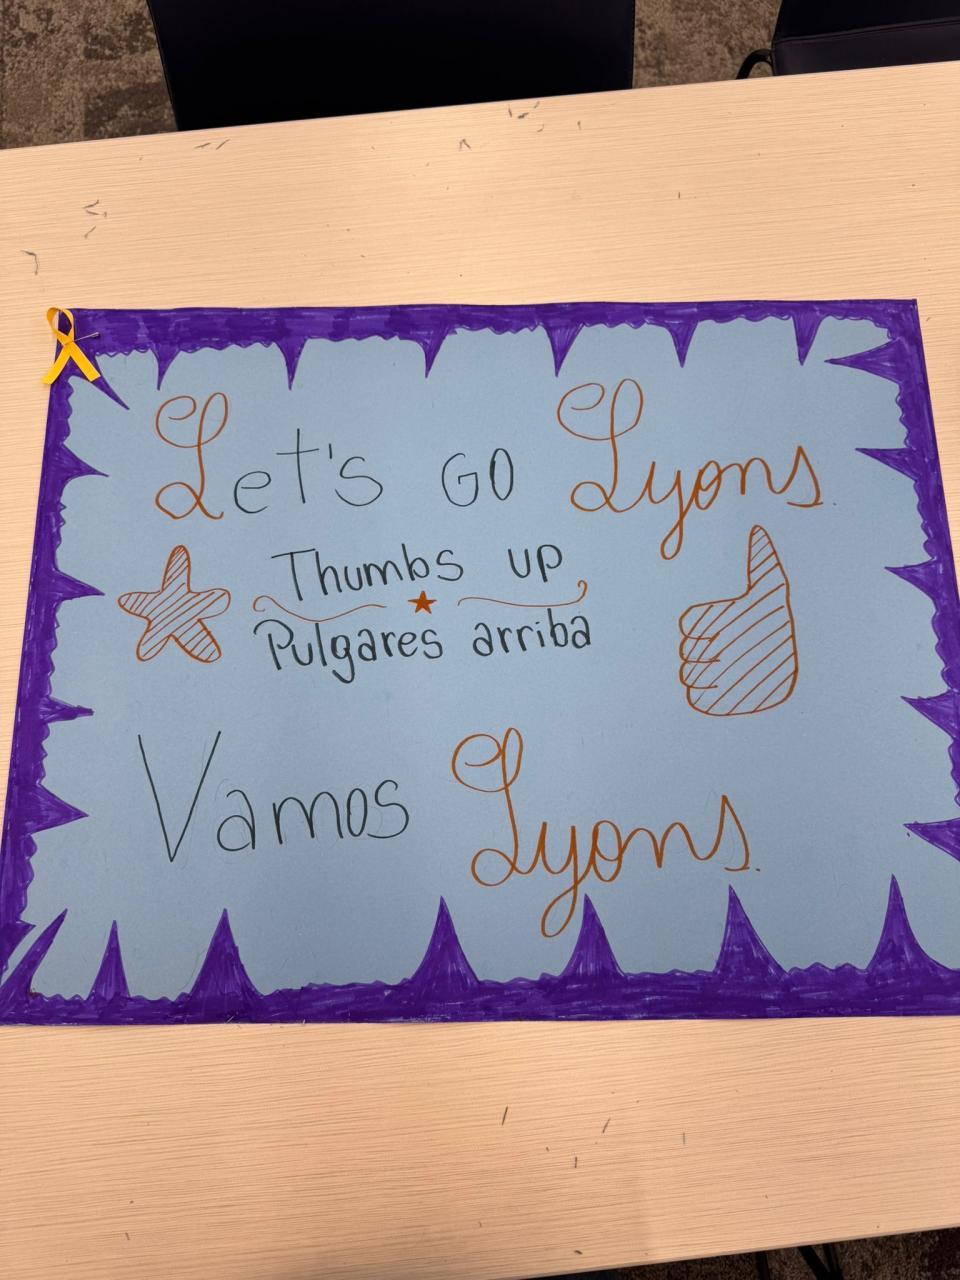 Let's GO Lyons.
Thumbs up
Pulgares arriba
Vamos Lyons.